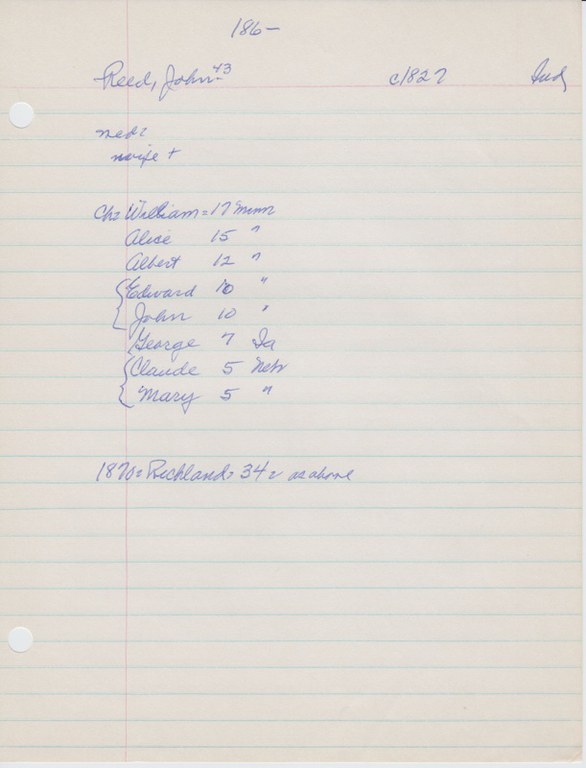 186-
Reed, John- 43 c1827 Ind
med=
wife +
Ch= William = 17 Minn
Alice 15 "
Albert 12 "
Edward 10 "
John 10 "
George 7 Ia
Claude 5 Neb
Mary 5 "
1870= Richland= 34= as above